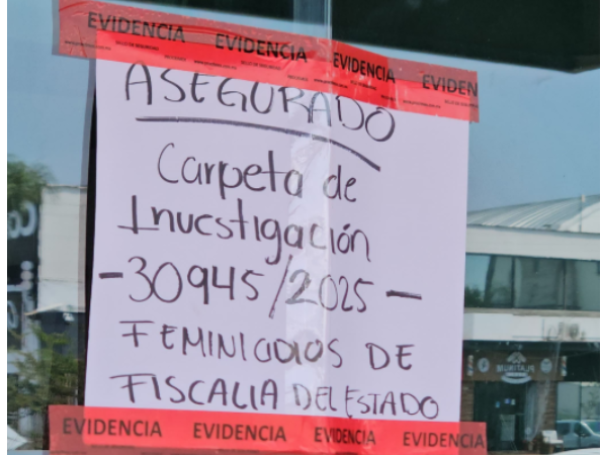 EVIDENCIA EVIDENCIA EVIDENCIA EVIDEN
ASEGURADO
Carpeta de
Investigación
-30945/2025-
FEMINICIDIOS DE
FISCALIA DEL ESTADO
EVIDENCIA EVIDENCIA EVIDENCIA EVIDENCIA